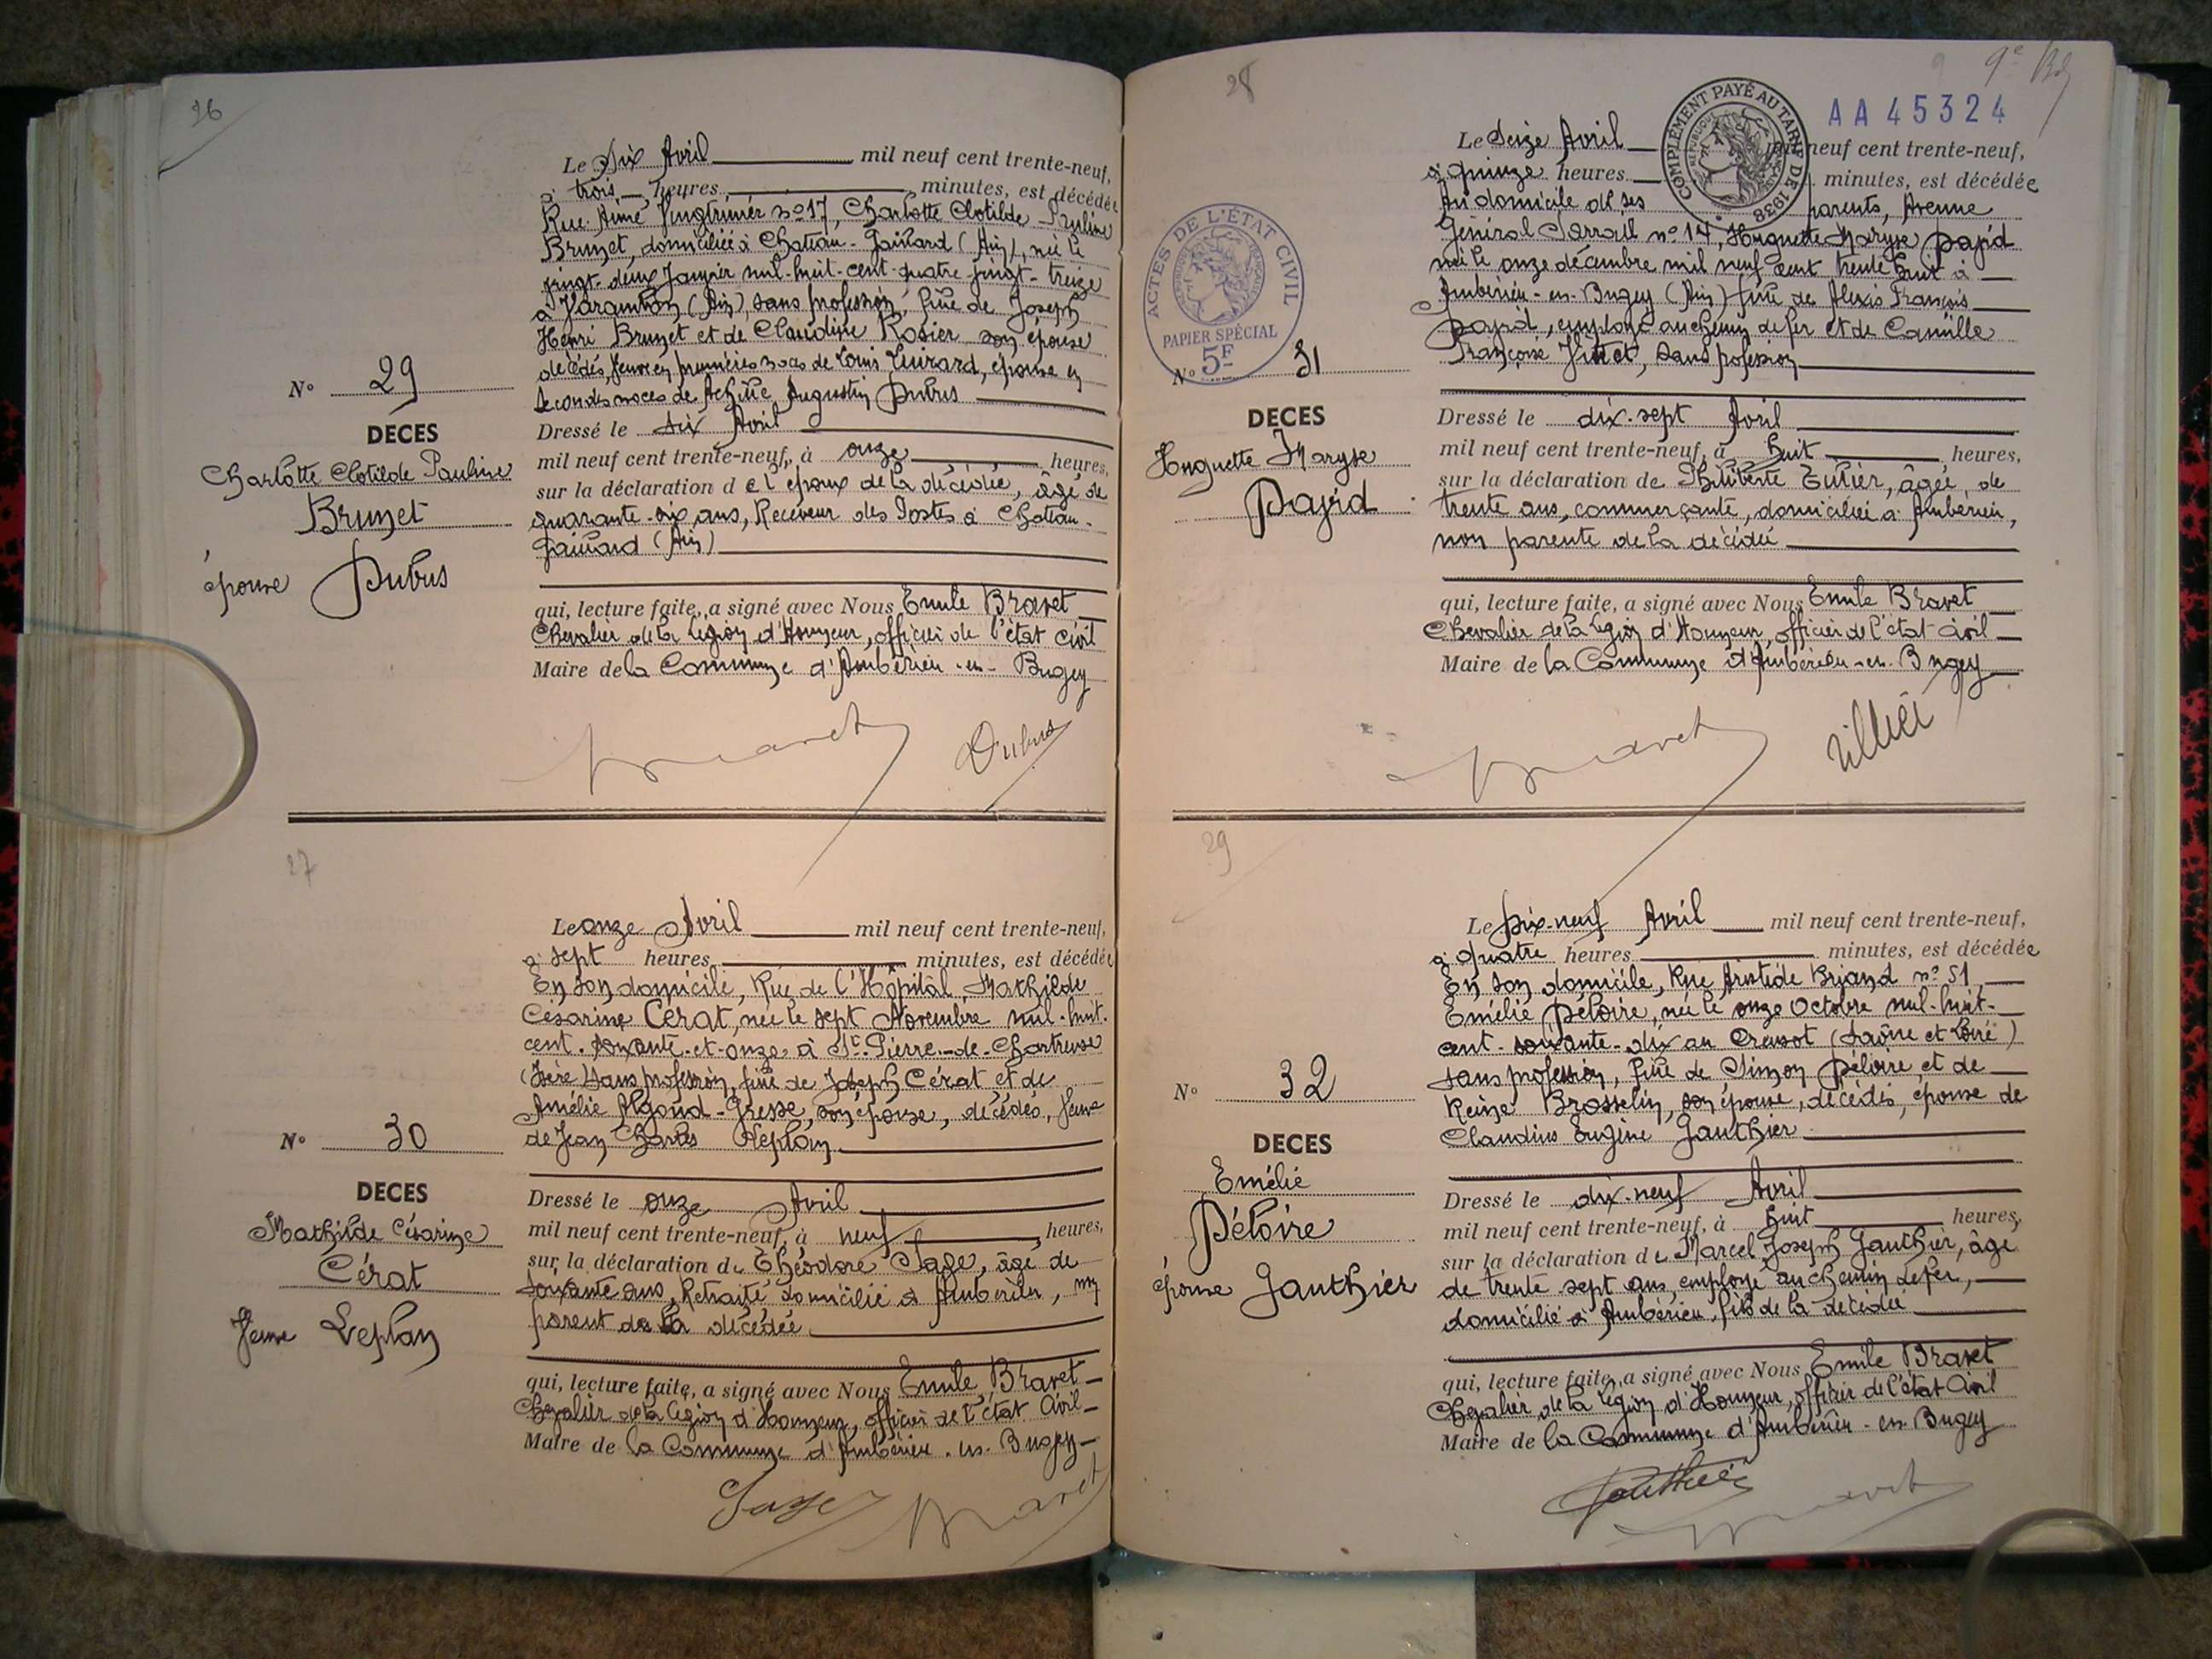 26
Le Six Avril mil neuf cent trente-neuf,
à trois heures minutes, est décédée
Rue Aimé Vingtrinier no 17, Charlotte Clotilde Pauline
Brunet, domiciliée à Chateau-Gaillard (Ain), née le
vingt-deux Janvier mil-huit-cent-quatre-vingt-treize
à Varambon (Ain), sans profession, fille de Joseph
Henri Brunet et de Claudine Rosier son épouse
décédés, veuve en premières noces de Louis épouse en
secondes noces de Achille Augustin Dubus
N° 29
DECES
Charlotte Clotilde Pauline
Brunet
épouse Dubus
Dressé le six Avril
mil neuf cent trente-neuf, à onze heures,
sur la déclaration de l'époux de la décédée, âgé de
quarante-six ans, Receveur des Postes à Chateau-
Gaillard (Ain)
qui, lecture faite, a signé avec Nous Emile Bravet
Chevalier de la Légion d'Honneur, officier de l'état civil
Maire de la Commune d'Ambérieu-en-Bugey
Bravet Dubus
27
Le onze Avril mil neuf cent trente-neuf,
à sept heures minutes, est décédée
En son domicile, Rue de l'Hôpital, Mathilde
Césarine Cérat, née le sept Novembre mil-huit-
cent-soixante-et-onze à St-Pierre-de-Chartreuse
(Isère) sans profession, fille de Joseph Cérat et de
Amélie Algoud-Gresse, son épouse, décédés, Veuve
de Jean Charles Leplan
N° 30
DECES
Mathilde Césarine
Cérat
Veuve Leplan
Dressé le onze Avril
mil neuf cent trente-neuf, à neuf heures,
sur la déclaration de Théodore Sage, âgé de
soixante ans, Retraité domicilié à Ambérieu, non
parent de la décédée
qui, lecture faite, a signé avec Nous Emile Bravet
Chevalier de la Légion d'Honneur, officier de l'état Civil
Maire de la Commune d'Ambérieu-en-Bugey
Sage Bravet
28
9e
AA 45324
COMPLÉMENT PAYÉ AU TARIF DE 1938
Le Seize Avril mil neuf cent trente-neuf,
à quinze heures minutes, est décédée
Au domicile de ses parents, Avenue
Général Sarrail no 14, Huguette Maryse David
née le onze décembre mil neuf cent trente huit à
Ambérieu-en-Bugey (Ain) fille de Alexis François
David, employé au chemin de fer et de Camille
Françoise Vittet, sans profession
ACTES DE L'ÉTAT CIVIL
PAPIER SPÉCIAL
5F
N° 31
DECES
Huguette Maryse
David
Dressé le dix-sept Avril
mil neuf cent trente-neuf, à huit heures,
sur la déclaration de Philiberte âgée de
trente ans, commerçante, domiciliée à Ambérieu,
non parente de la décédée
qui, lecture faite, a signé avec Nous Emile Bravet
Chevalier de la Légion d'Honneur, officier de l'état civil
Maire de la Commune d'Ambérieu-en-Bugey
Bravet
29
Le Dix-neuf Avril mil neuf cent trente-neuf,
à quatre heures minutes, est décédée
En son domicile, Rue Aristide Briand no 51
Emélie Déloire, née le onze Octobre mil-huit-
cent-soixante-dix au Creusot (Saône et Loire)
sans profession, fille de Simon Déloire et de
Reine Brosselin, son épouse, décédés, épouse de
Claudius Eugène Gauthier
N° 32
DECES
Emélie
Déloire
épouse Gauthier
Dressé le dix-neuf Avril
mil neuf cent trente-neuf, à huit heures,
sur la déclaration de Marcel Joseph Gauthier, âgé
de trente sept ans, employé au chemin de fer,
domicilié à Ambérieu, fils de la décédée
qui, lecture faite, a signé avec Nous Emile Bravet
Chevalier de la Légion d'Honneur, officier de l'état Civil
Maire de la Commune d'Ambérieu-en-Bugey
Gauthier Bravet